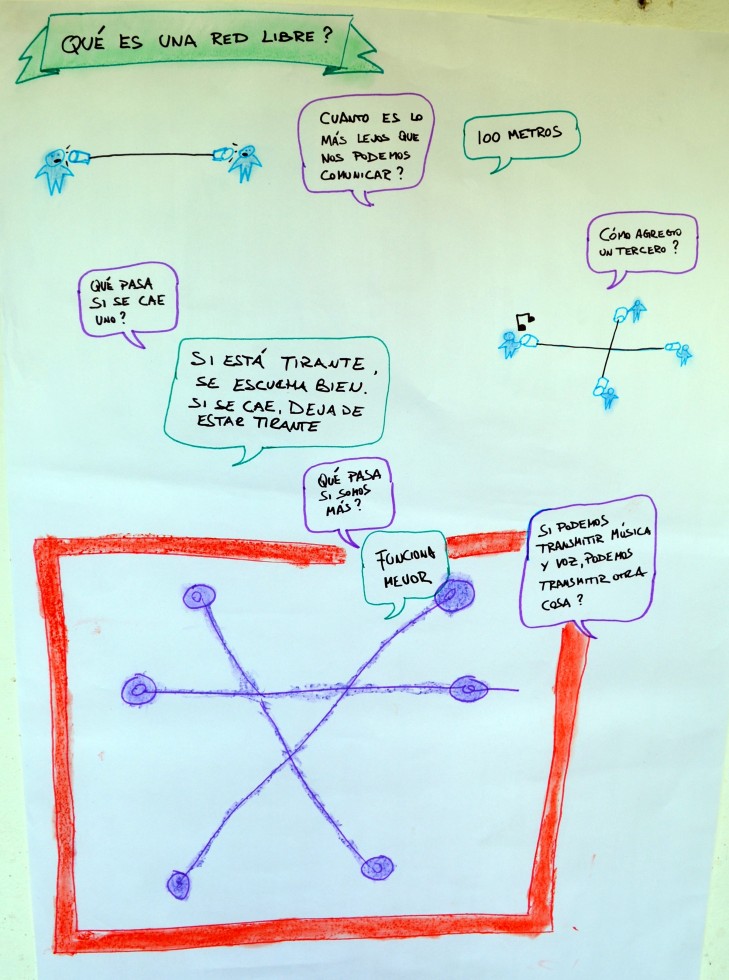 QUÉ ES UNA RED LIBRE?
CUANTO ES LO
MÁS LEJOS QUE
NOS PODEMOS
COMUNICAR?
100 METROS
CÓMO AGREGO
UN TERCERO?
QUÉ PASA
SI SE CAE
UNO?
SI ESTÁ TIRANTE,
SE ESCUCHA BIEN.
SI SE CAE, DEJA DE
ESTAR TIRANTE
QUÉ PASA
SI SOMOS
MÁS?
FUNCIONA
MEJOR
SI PODEMOS
TRANSMITIR MÚSICA
Y VOZ, PODEMOS
TRANSMITIR OTRA
COSA?